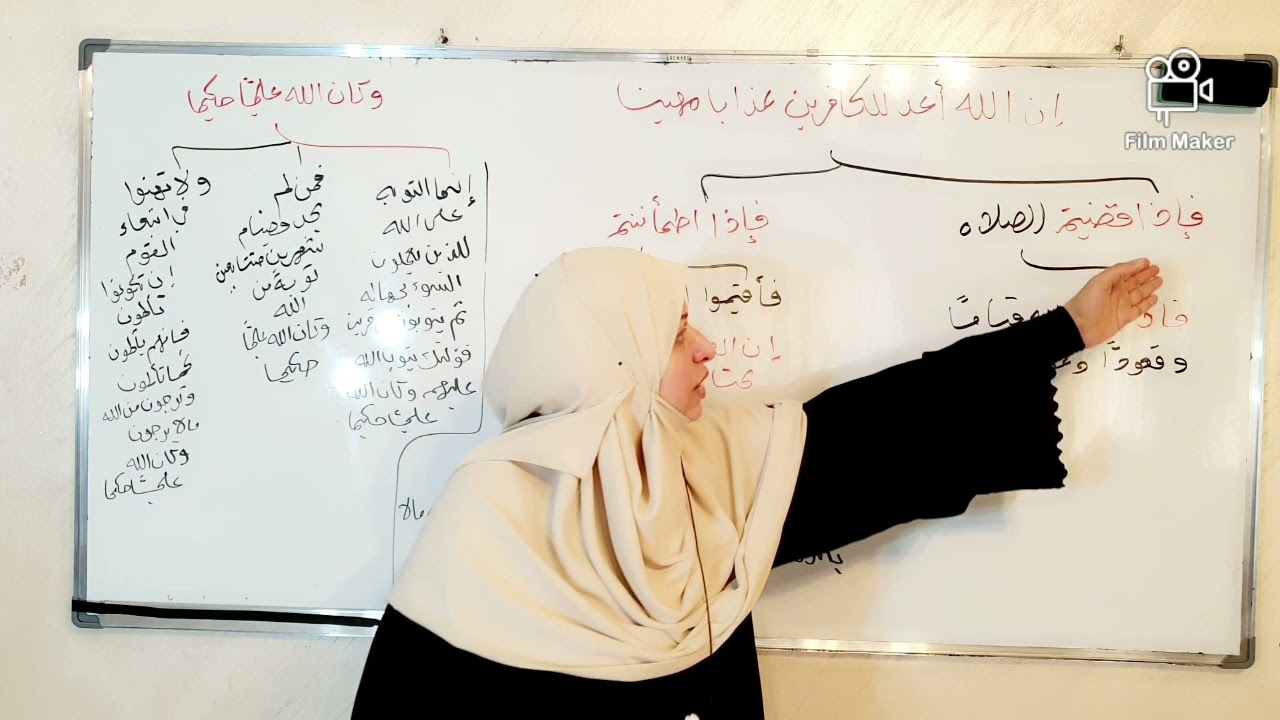 Film Maker
إن الله أعد للكافرين عذابا مهينا
فإذا قضيتم الصلاه
قياما
وقعودًا
فإذا اطمأننتم
فأقيموا
إن
وكان الله عليمًا حكيما
إنما التوبه
على الله
للذين يعملون
السوء بجهاله
ثم يتوبون قريب
فؤلئك يتوب الله
عليهم وكان الله
عليمًا حكيما
فمن لم
يجد فصيام
شهرين متتابعين
توبة من
الله
وكان الله عليمًا
حكيما
ولا تهنوا
في ابتغاء
القوم
إن تكونوا
تألمون
فإنهم يألمون
كما تألمون
وترجون من الله
مالا يرجون
وكان الله
عليمًا حكيما
مالا